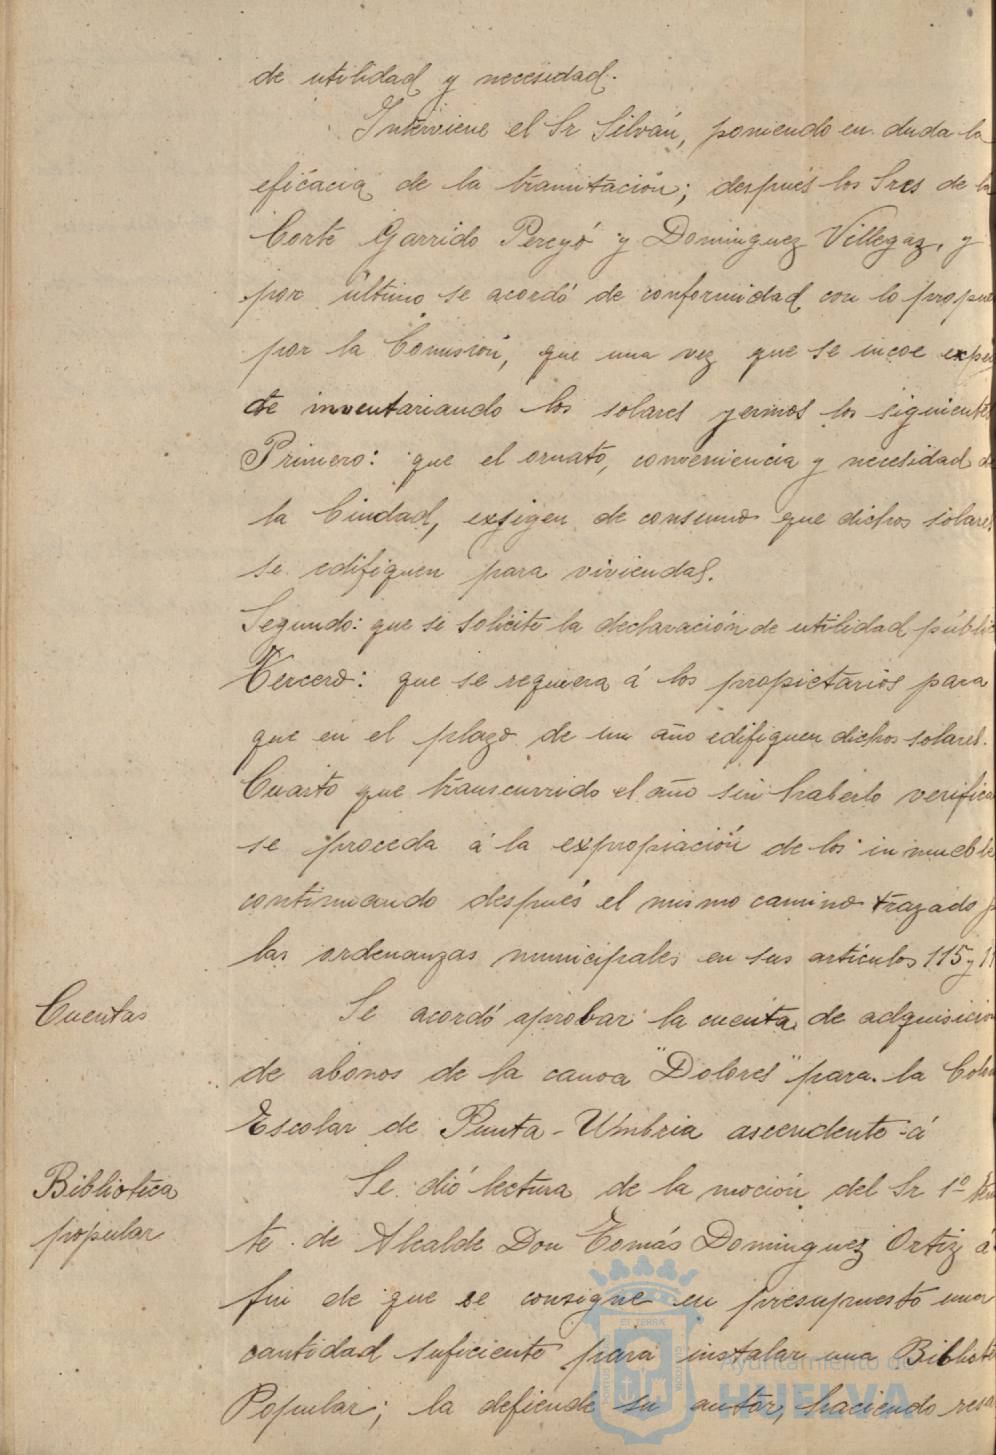 de utilidad y necesidad.
Interviene el Sr Silván, poniendo en duda la
eficacia de la tramitación; después los Sres de la
Corte Garrido Pereyó y Dominguez Villegaz, y
por último se acordó de conformidad con lo propue
por la Comisión, que una vez que se incoe expe
de inventariando los solares yermos los siguientes
Primero: que el ornato, conveniencia y necesidad de
la Ciudad, exsigen de consumo que dichos solares
se edifiquen para viviendas.
Segundo: que se solicite la declaración de utilidad públic
Tercero: que se requiera á los propietarios para
que en el plazo de un año edifiquen dichos solares.
Cuarto que transcurrido el año sin haberlo verifica
se proceda á la expropiación de los inmueble
continuando después el mismo camino trazado p
las ordenanzas municipales en sus artículos 115 y 11
Cuentas
Se acordó aprobar la cuenta de adquisicion
de abonos de la canoa "Dolores" para la Colo
Escolar de Punta-Umbria ascendente á
Biblioteca
popular
Se dió lectura de la moción del Sr 1º Ten
te de Alcalde Don Tomás Dominguez Ortiz á
fin de que se consigne en presupuesto una
cantidad suficiente para instalar una Bibliote
Popular; la defiende su autor, haciendo resa
Ayuntamiento de
HUELVA